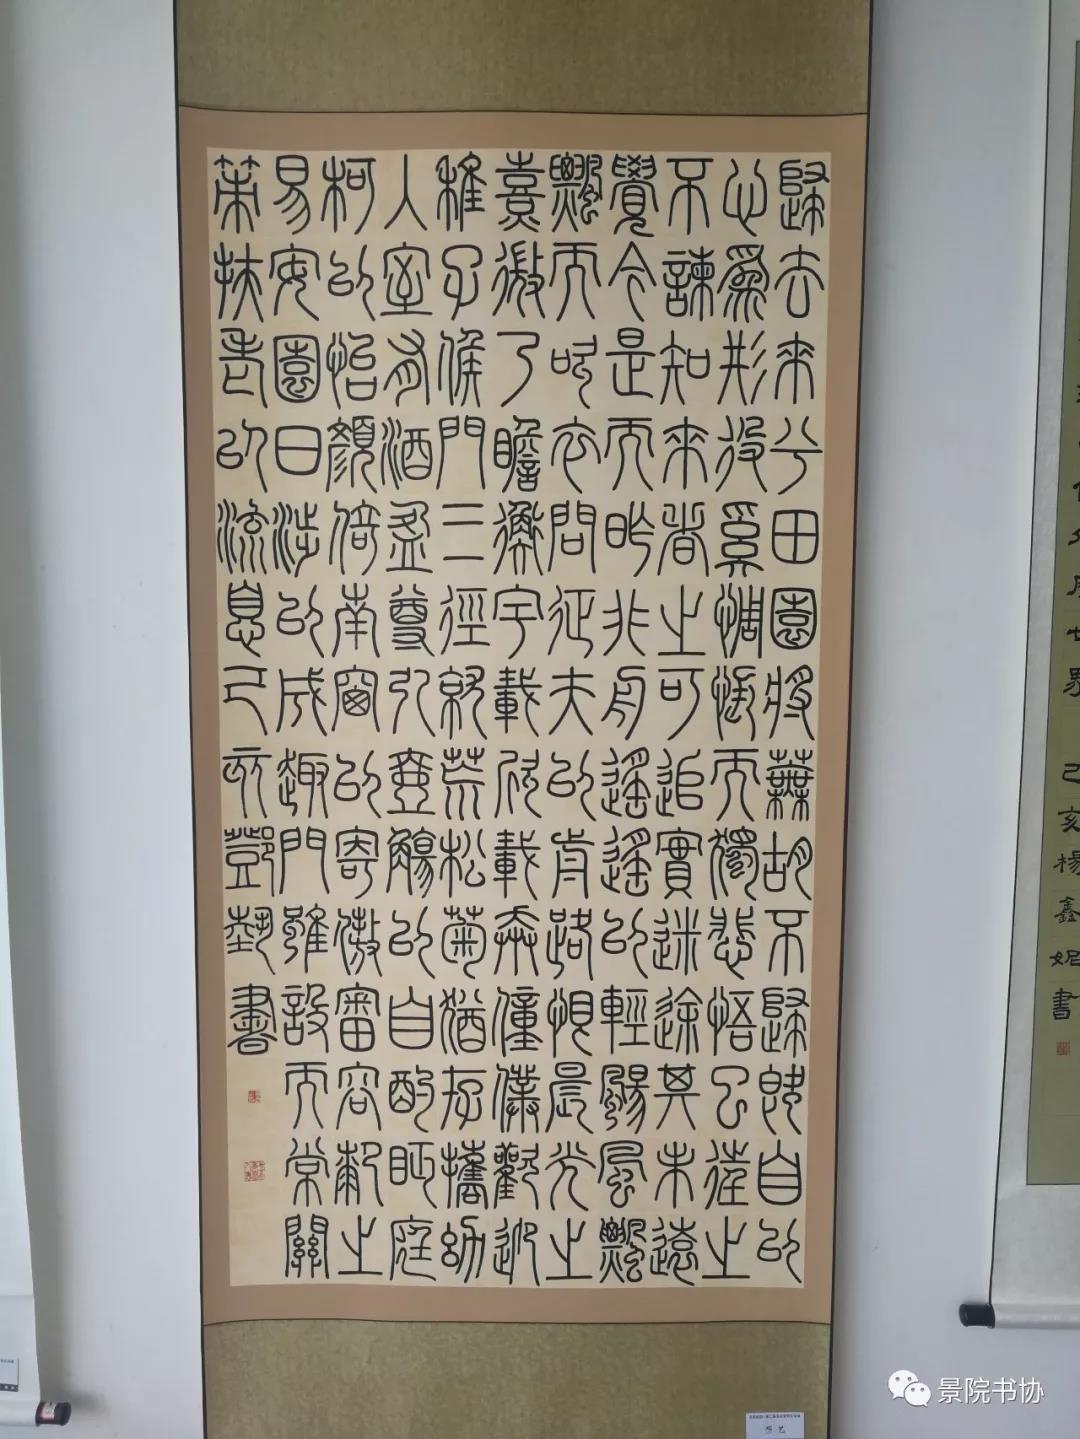 歸去來兮田園將蕪胡不歸既自以
心爲形役奚惆悵而獨悲悟已往之
不諫知來者之可追實迷途其未遠
覺今是而昨非舟遙遙以輕颺風飄
飄而吹衣問征夫以前路恨晨光之
熹微乃瞻衡宇載欣載奔僮僕歡迎
稚子候門三徑就荒松菊猶存攜幼
入室有酒盈尊引壺觴以自酌眄庭
柯以怡顏倚南窗以寄傲審容膝之
易安園日涉以成趣門雖設而常關
策扶老以流息己亥鄧藝書
世界
己亥楊鑫妮書
景院书协